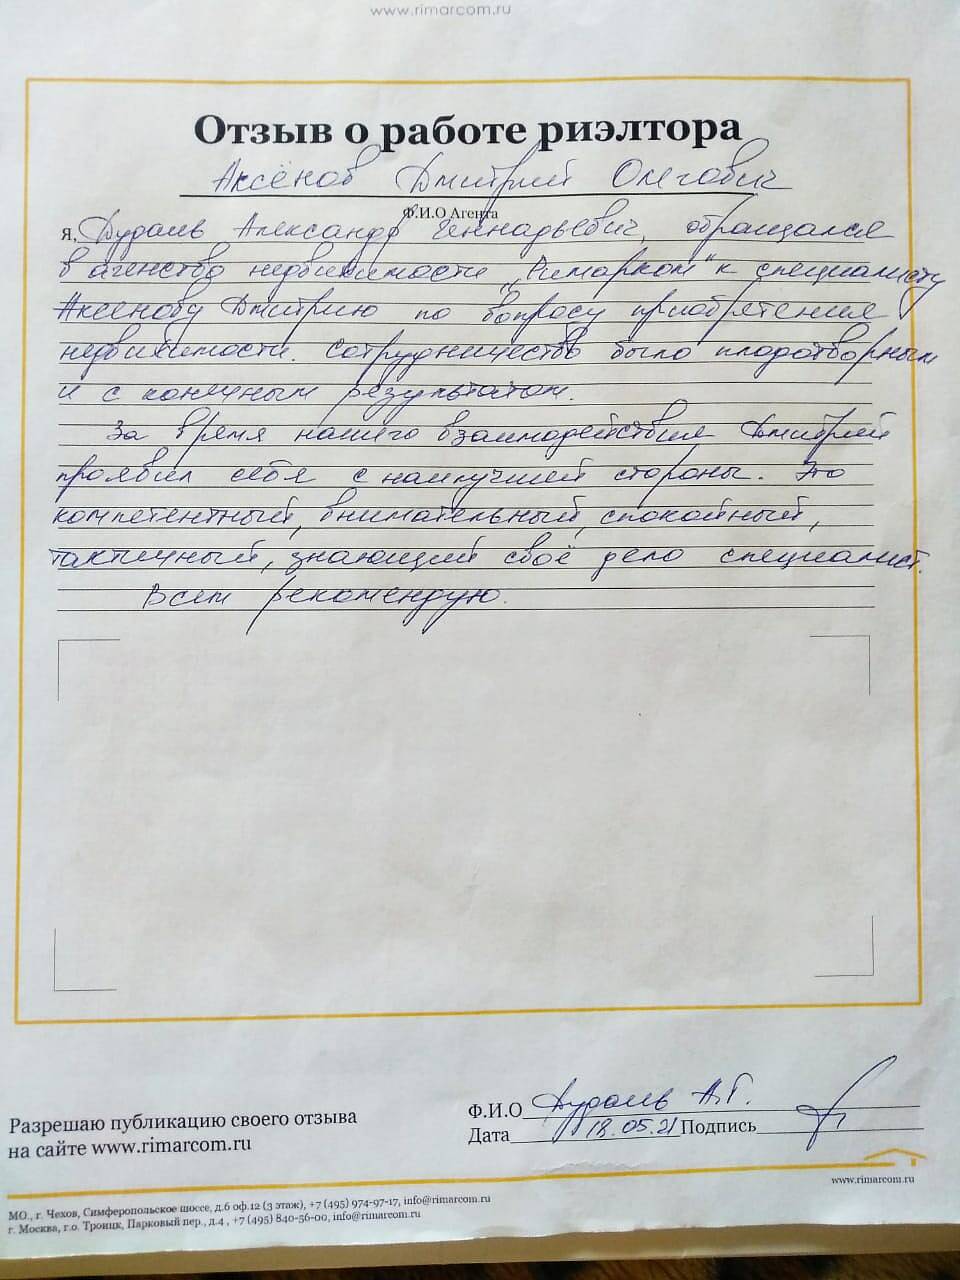 www.rimarcom.ru
Отзыв о работе риэлтора
Аксёнов Дмитрий Олегович
Ф.И.О Агента
Я, Дураль Александр Геннадьевич, обращался
в агенство недвижимости "Римарком" к специалисту
Аксенову Дмитрию по вопросу приобретения
недвижимости. Сотрудничество было плодотворным
и с конечным результатом.
За время нашего взаимодействия Дмитрий
проявил себя с наилучшей стороны. Это
компетентный, внимательный, спокойный,
тактичный, знающий своё дело специалист.
Всем рекомендую.
Разрешаю публикацию своего отзыва
на сайте www.rimarcom.ru
Ф.И.О Дураль А.Г.
Дата 18.05.21 Подпись
www.rimarcom.ru
МО., г. Чехов, Симферопольское шоссе, д.6 оф.12 (3 этаж), +7 (495) 974-97-17, info@rimarcom.ru
г. Москва, г.о. Троицк, Парковый пер., д.4 , +7 (495) 840-56-00, info@rimarcom.ru